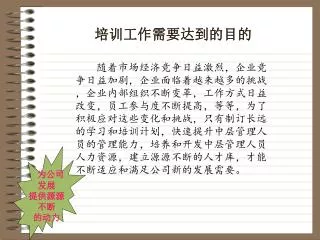 培训工作需要达到的目的
随着市场经济竞争日益激烈，企业竞
争日益加剧，企业面临着越来越多的挑战
，企业内部组织不断变革，工作方式日益
改变，员工参与度不断提高，等等，为了
积极应对这些变化和挑战，只有制订长远
的学习和培训计划，快速提升中层管理人
员的管理能力，培养和开发中层管理人员
人力资源，建立源源不断的人才库，才能
不断适应和满足公司新的发展需要。
为公司
发展
提供源源
不断
的动力